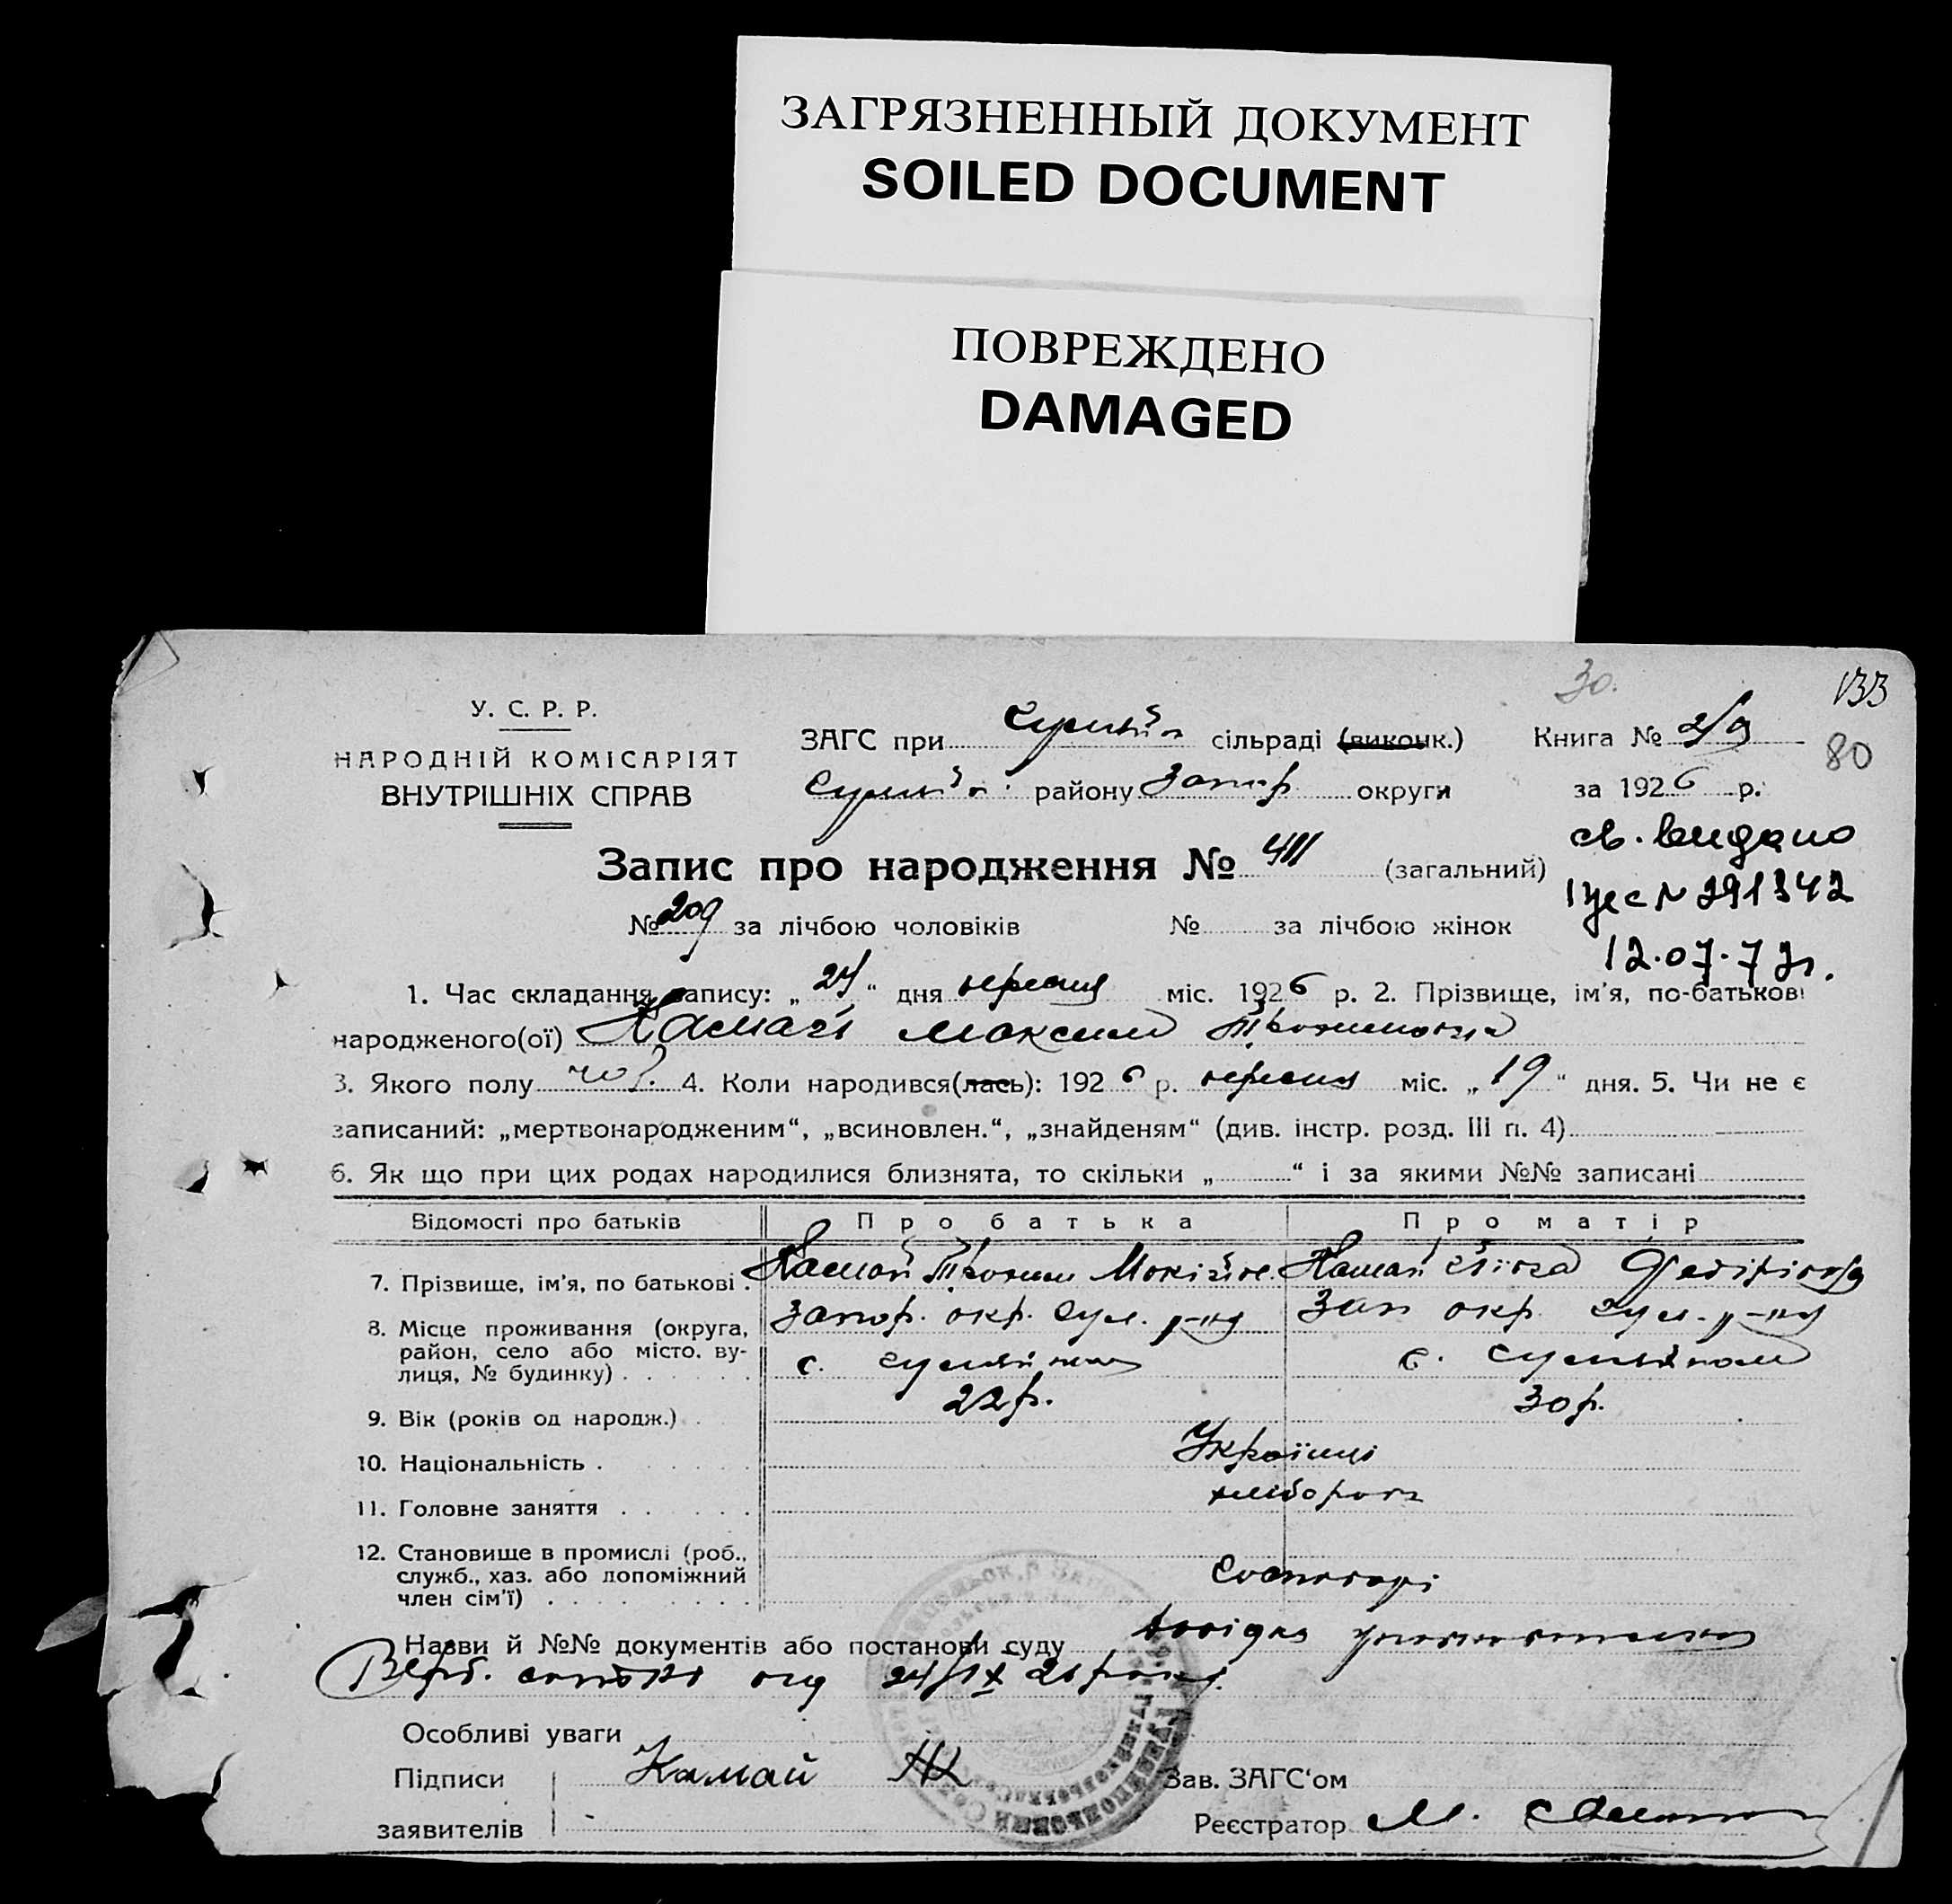 ЗАГРЯЗНЕННЫЙ ДОКУМЕНТ
SOILED DOCUMENT
ПОВРЕЖДЕНО
DAMAGED
30.
133
80
У. С. Р. Р.
НАРОДНІЙ КОМІСАРІЯТ
ВНУТРІШНІХ СПРАВ
ЗАГС при сільраді (виконк.) Книга №
району Запор. округи за 1926 р.
св. видано
№ 291342
12.07.77г.
Запис про народження № 411 (загальний)
№ 209 за лічбою чоловіків № за лічбою жінок
1. Час складання запису: „24“ дня вересня міс. 1926 р. 2. Прізвище, ім'я, по-батькові
народженого(ої) Камай Максим Трохимович
3. Якого полу чол. 4. Коли народився(лась): 1926 р. вересня міс. „19“ дня. 5. Чи не є
записаний: „мертвонародженим“, „всиновлен.“, „знайденям“ (див. інстр. розд. III п. 4)
6. Як що при цих родах народилися близнята, то скільки „ “ і за якими №№ записані
Відомості про батьків Про батька Про матір
7. Прізвище, ім'я, по батькові . Камай Трохим Камай
8. Місце проживання (округа, Запор. окр. р-на Зап окр. р-на
район, село або місто. ву- с. с.
лиця, № будинку)
9. Вік (років од народж.) . 22 р. 30 р.
10. Національність . Українці
11. Головне заняття . хлібороби
12. Становище в промислі (роб.,
служб., хаз. або допоміжний
член сім'ї)
Назви й №№ документів або постанови суду довідка
од 24/IX 26 року
Особливі уваги
Підписи Камай Зав. ЗАГС'ом
заявителів Реєстратор М.